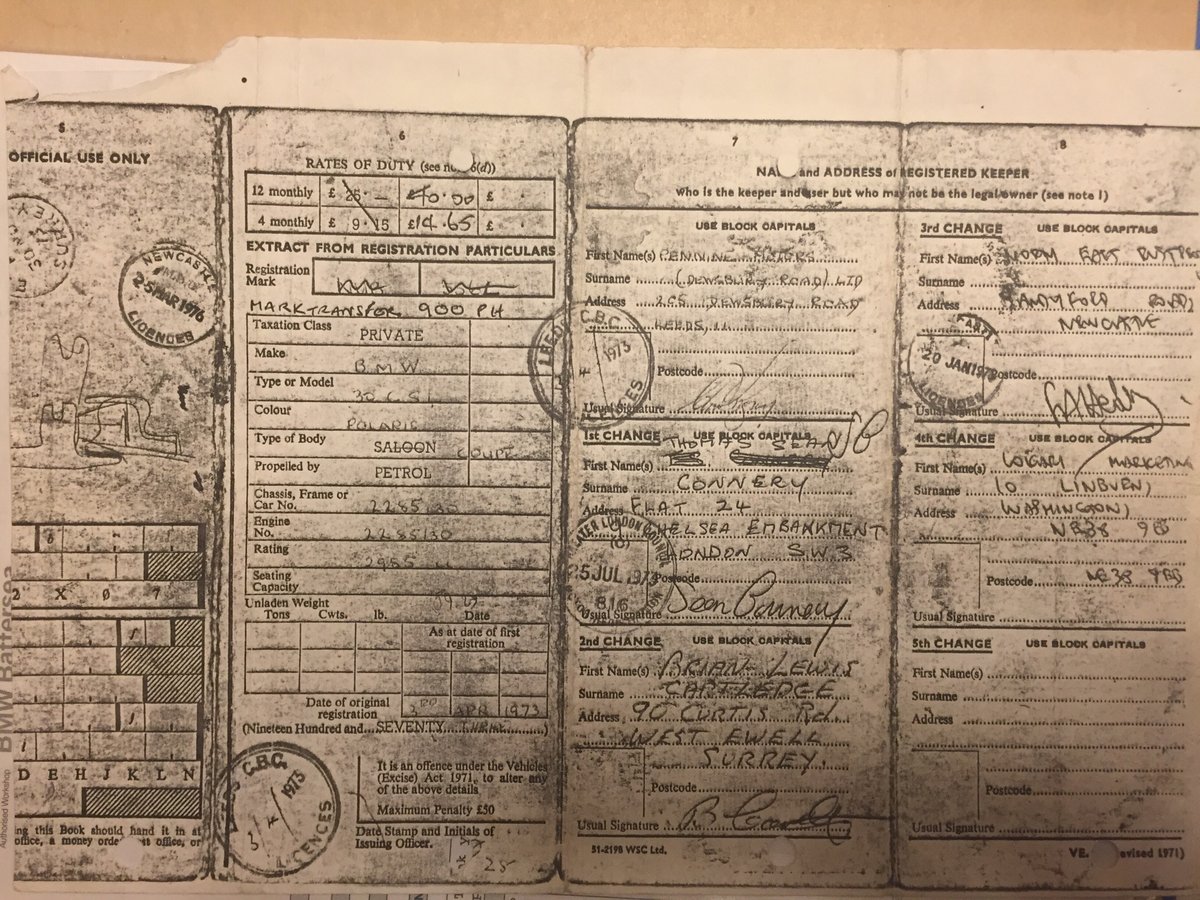 5
OFFICIAL USE ONLY
SURREY
NEWCASTLE
25 MAR 1976
LICENCES
2 X 0 7
D E H J K L N
ing this Book should hand it in at
office, a money order, post office, or
BMW Battersea
Authorised Workshop
6
RATES OF DUTY (see note 6(d))
12 monthly £ 25 · — £40·00 £ ·
4 monthly £ 9·15 £14.65 £ ·
EXTRACT FROM REGISTRATION PARTICULARS
Registration
Mark
MARK TRANSFER 900 PH
Taxation Class PRIVATE
Make B.M.W.
Type or Model 30 C.S.
Colour POLARIS
Type of Body SALOON COUPE
Propelled by PETROL
Chassis, Frame or
Car No. 2285130
Engine
No. 2285130
Rating 2985
Seating
Capacity
Unladen Weight
Tons Cwts. lb. Date
As at date of first
registration
Date of original
registration 3RD APR 1973
(Nineteen Hundred and SEVENTY THREE)
C.B.C.
LEEDS
3/4/1973
LICENCES
It is an offence under the Vehicles
(Excise) Act 1971, to alter any
of the above details
Maximum Penalty £50
Date Stamp and Initials of
Issuing Officer.
25
7
NAME and ADDRESS of REGISTERED KEEPER
who is the keeper and user but who may not be the legal owner (see note 1)
USE BLOCK CAPITALS
First Name(s) PENNINE MOTORS
Surname (DEWSBURY ROAD) LTD
Address 265 DEWSBURY ROAD
LEEDS 11
LEEDS C.B.C.
1973
LICENCES
Postcode
Usual Signature
1st CHANGE USE BLOCK CAPITALS
THOMAS SEAN
First Name(s)
Surname CONNERY
Address FLAT 24
CHELSEA EMBANKMENT
LONDON S.W.3
GREATER LONDON COUNCIL
(C)
25 JUL 1973
816
Postcode
Usual Signature Sean Connery
2nd CHANGE USE BLOCK CAPITALS
First Name(s) BRIAN LEWIS
Surname CARTLEDGE
Address 90 CURTIS Rd.
WEST EWELL
SURREY.
Postcode
Usual Signature
51-2198 WSC Ltd.
8
3rd CHANGE USE BLOCK CAPITALS
First Name(s) NORTH EAST
Surname
Address SANDYFORD ROAD
NEWCASTLE
20 JAN 197
LICENCES
Postcode
Usual Signature
4th CHANGE USE BLOCK CAPITALS
First Name(s) MARKETING
Surname 10
Address WASHINGTON
NE38
Postcode NE38
Usual Signature
5th CHANGE USE BLOCK CAPITALS
First Name(s)
Surname
Address
Postcode
Usual Signature
VE. evised 1971)